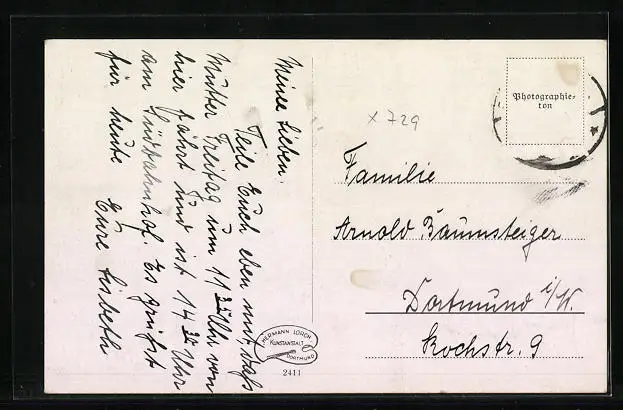 Meine Lieben.
Teile Euch eben mit, daß
Mutter Freitag um 11 Uhr von
hier fährt und ist 14 30 Uhr
am Südbahnhof. Es grüßt
für heute Eure Lisbeth
Photographie-
ton
x 729
Familie
Arnold Baumsteiger
Dortmund i/W.
Kochstr. 9
HERMANN LORCH
KUNSTANSTALT
DORTMUND
2411